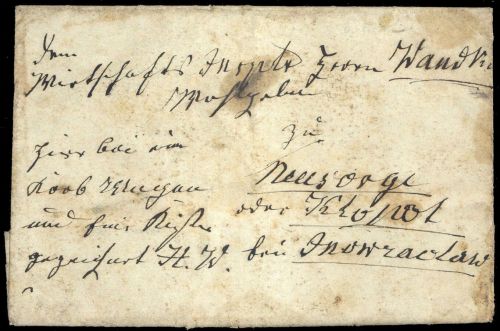 Dem
Wirtschafts Inspktr Herrn Wandk
Wohlgeboren
zu
Neusorge
oder Klopot
bei Inowraclaw
Hier bei ein
Korb
und eine Kiste
gezeichnet H. W.